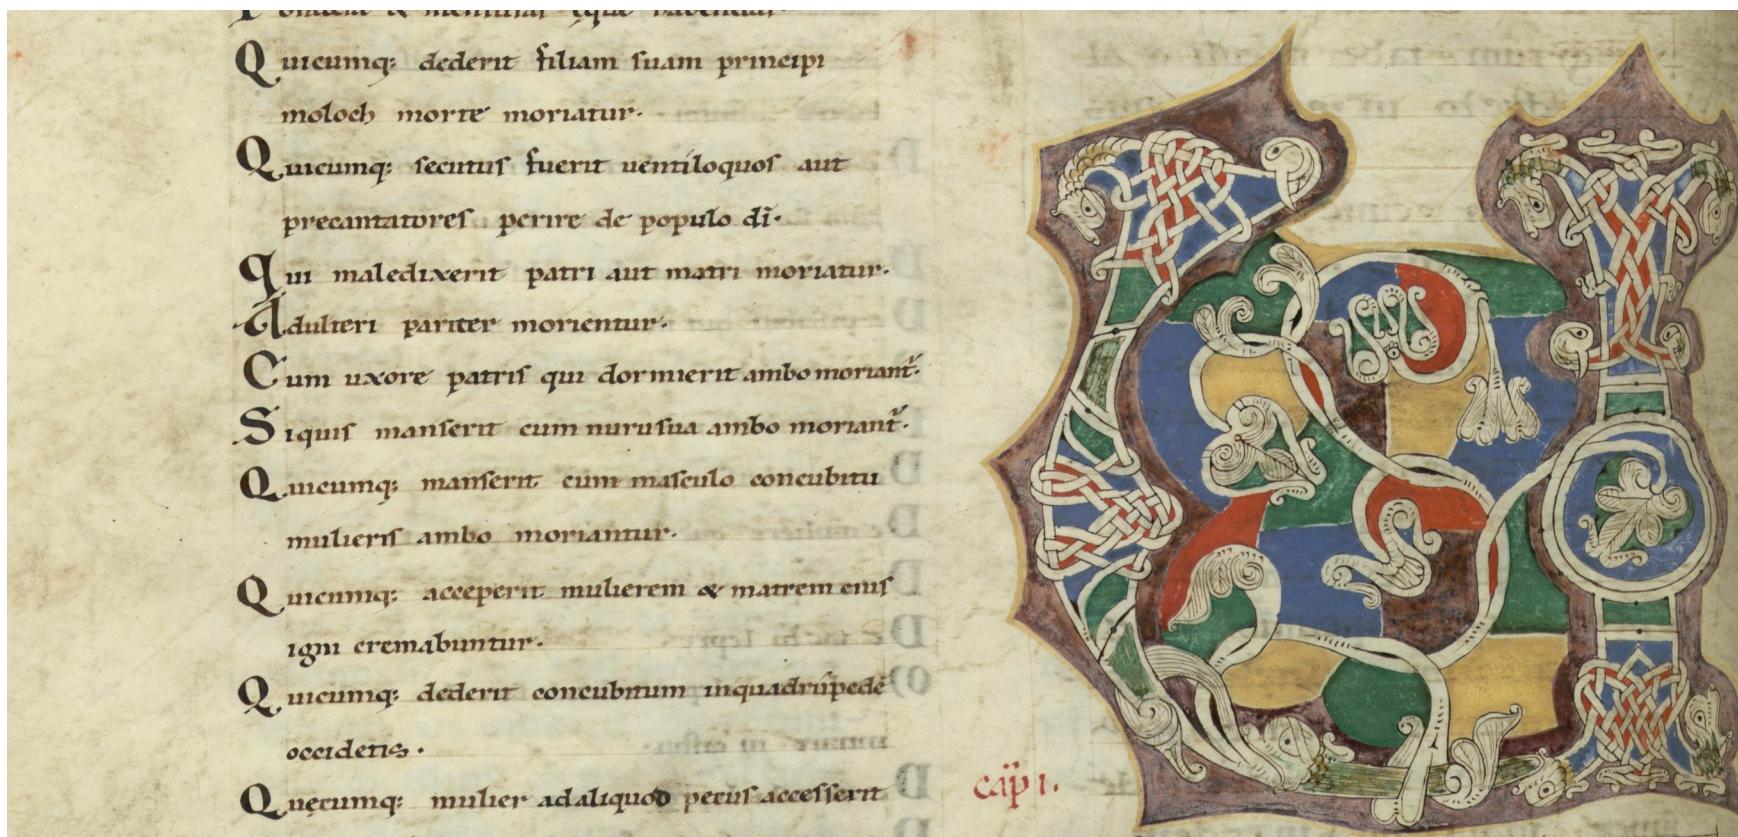 ponderā & mensuras ęque habendas
Quicumq; dederit filiam suam principi
moloch morte moriatur.
Quicumq; secutus fuerit ventiloquos aut
precantatores perire de populo dī.
qui maledixerit patri aut matri moriatur.
Adulteri pariter morientur.
Cum uxore patris qui dormierit ambo moriant̄.
Siquis manserit cum nurusua ambo moriant̄.
Quicumq; manserit cum masculo concubitu
mulieris ambo moriantur.
Quicumq; acceperit mulierem & matrem eius
igni cremabuntur.
Quicumq; dederit concubitum inquadrupedē
occidetis.
Quęcumq; mulier adaliquod pecus accesserit
cap̄ i.
U